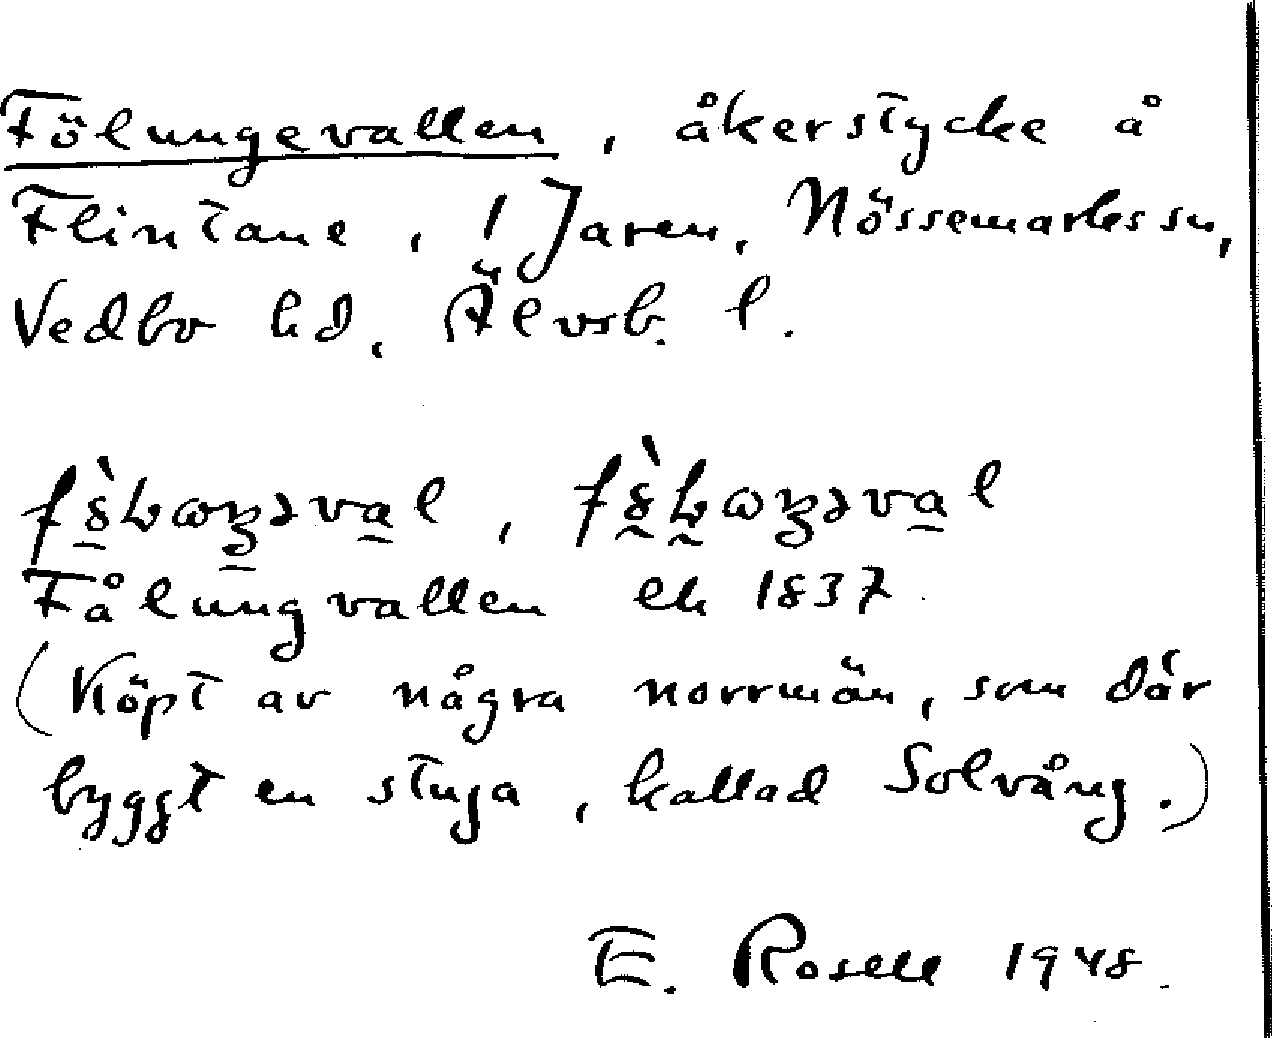 Fölungevallen, åkerstycke å
Flintane, 1 Jaren, Nössemarks sn,
Vedbo hd, Älvsb. l.
Fålungvallen lk 1837.
(Köpt av några norrmän, som där
byggt en stuga, kallad Solvång.)
E. Rosell 1948.